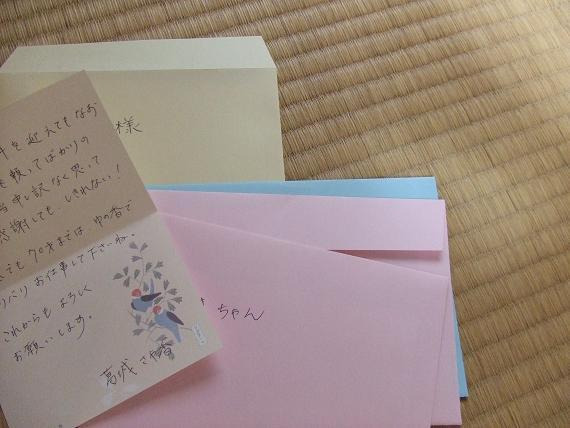 様
年を迎えてもなお
を頼ってばかりの
当申し訳なく思って
感謝しても、しきれない！
でも70才までは、ゆの香で
バリバリお仕事して下さいね。
これからもよろしく
お願いします。
葛城さや香
ちゃん